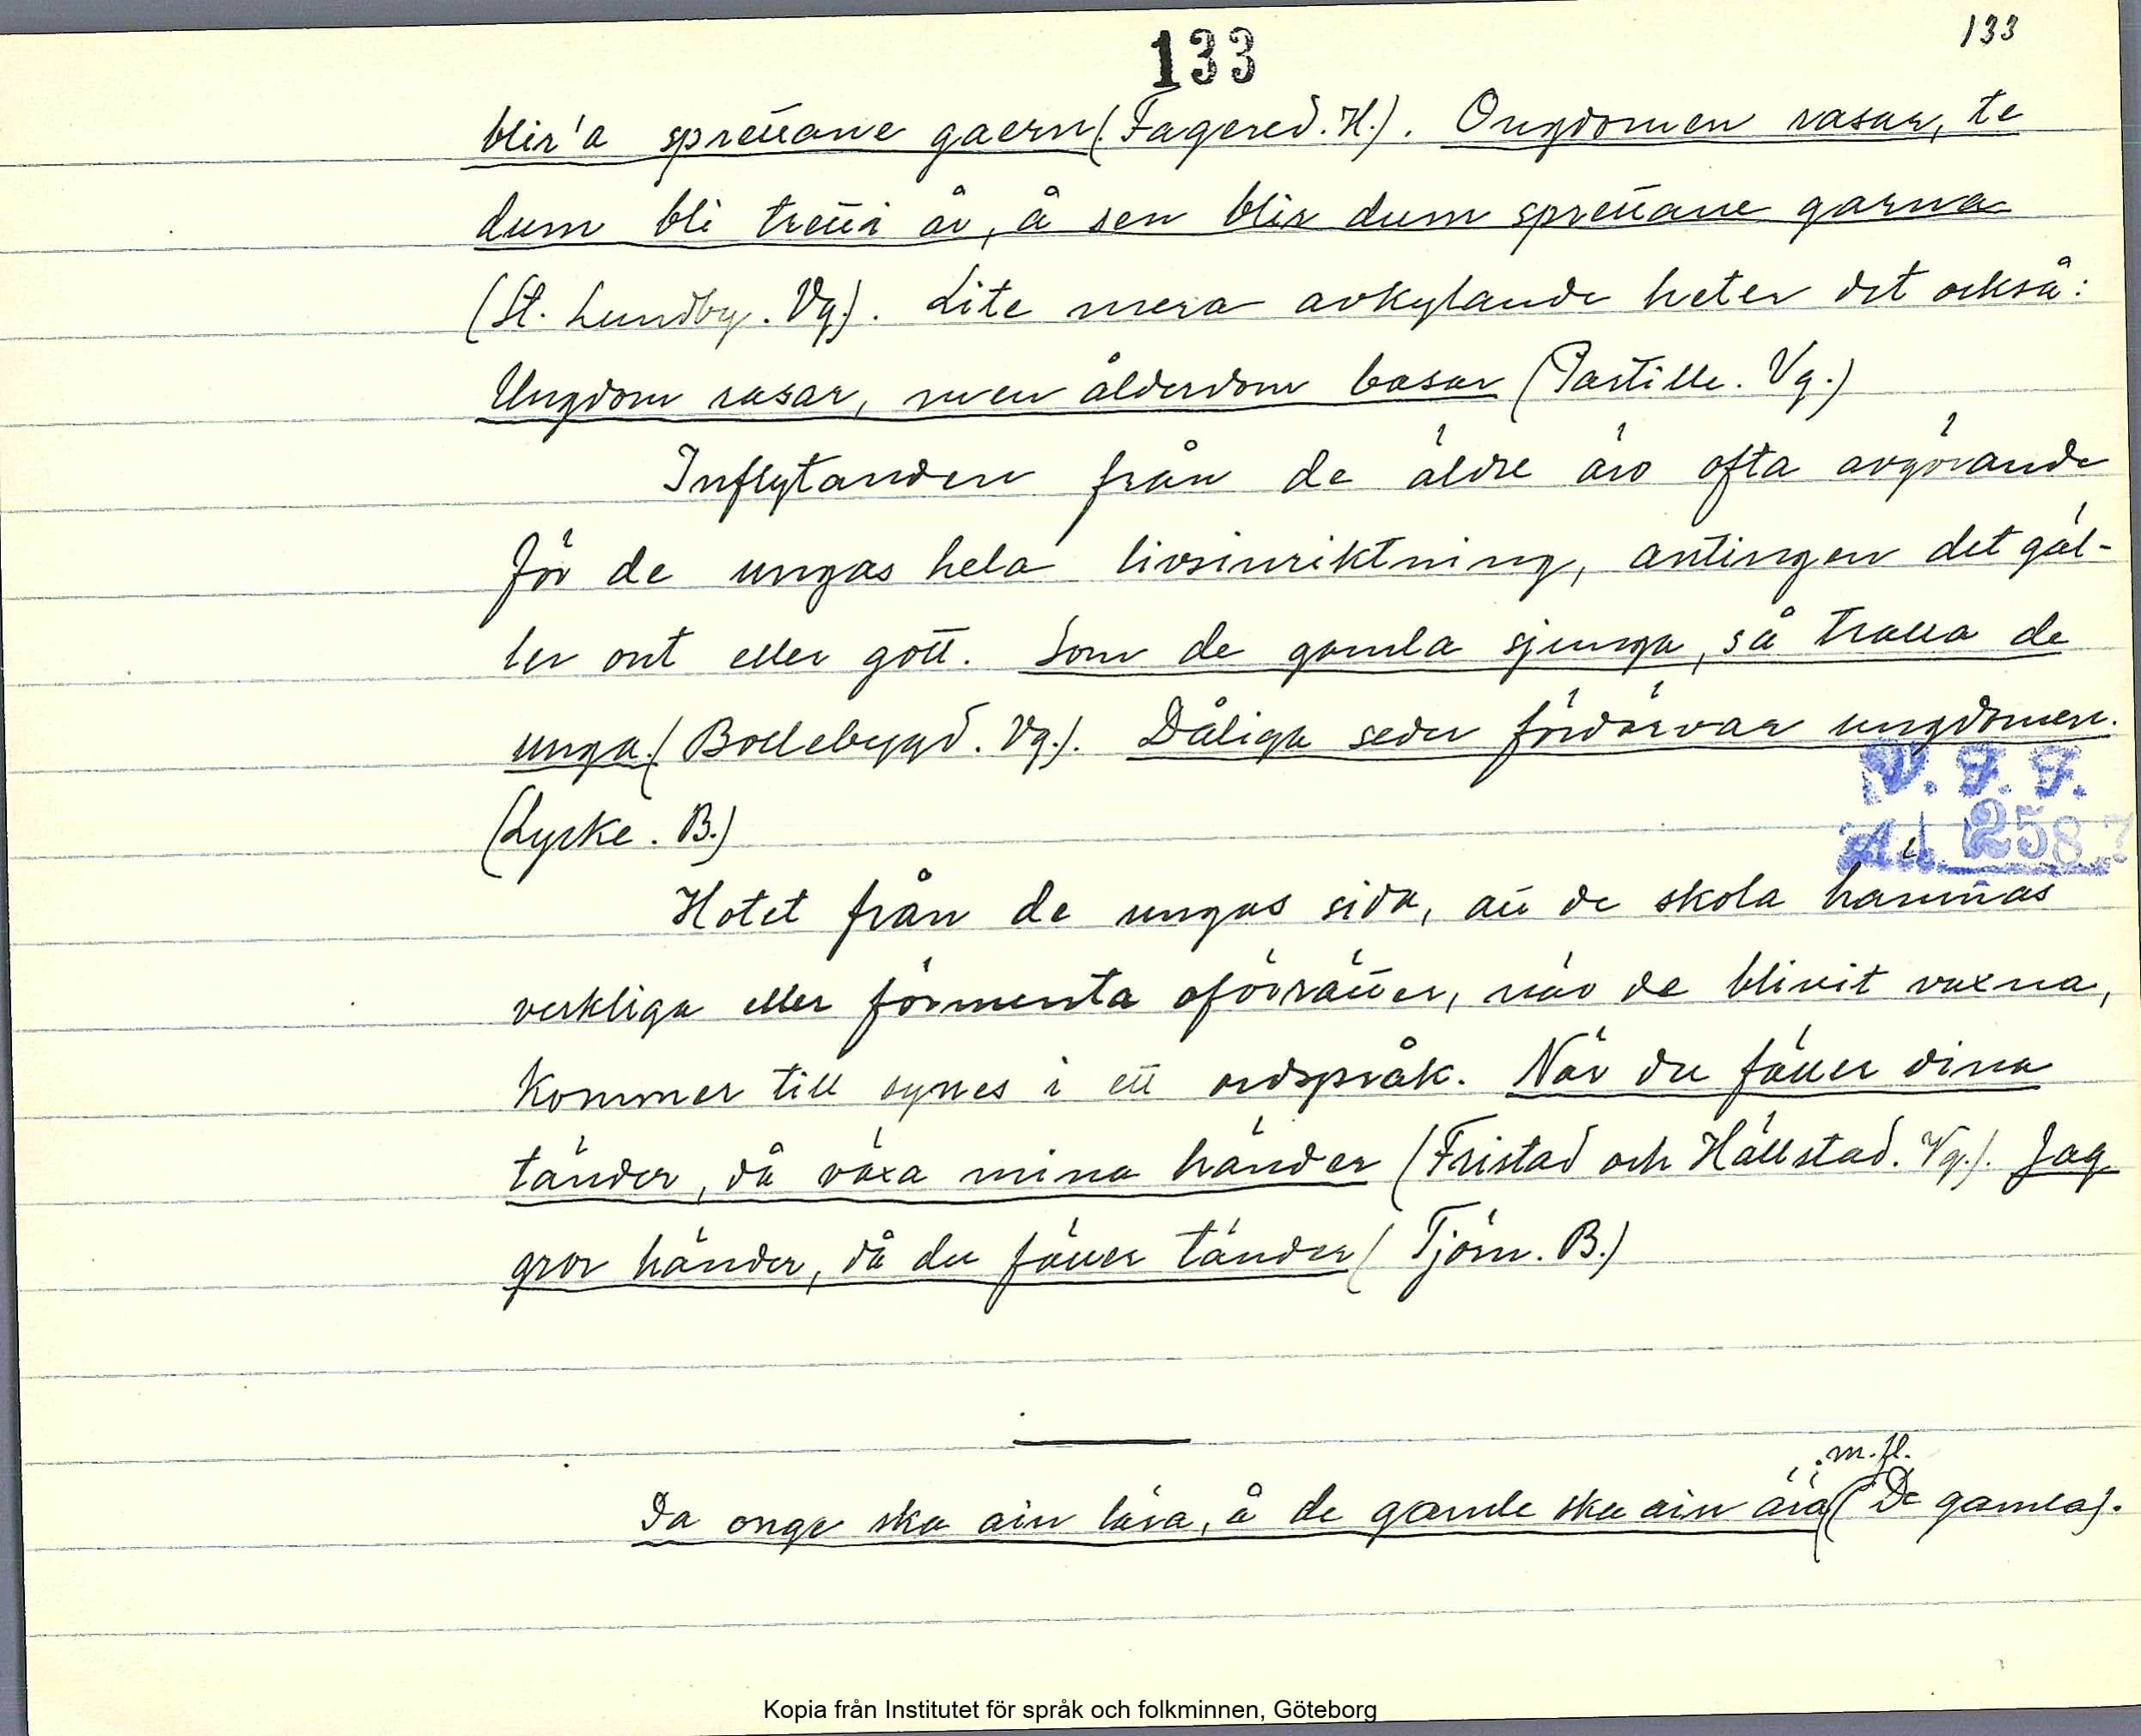 133
133
blir'a sprettane gaern (Fagered. H.). Ongdomen rasar, te
dum bli tretti år, å sen blir dum sprettane garna
(St. Lundby. Vg.). Lite mera avkylande heter det också:
Ungdom rasar, men ålderdom basar (Partille. Vg.)
Inflytanden från de äldre äro ofta avgörande
för de ungas hela livsinriktning, antingen det gäl-
ler ont eller gott. Som de gamla sjunga, så tralla de
unga. (Bollebygd. Vg.). Dåliga seder fördärvar ungdomen.
V. F. F.
(Lycke. B.)
Ad. 2587
Hotet från de ungas sida, att de skola hämnas
verkliga eller förmenta oförrätter, när de blivit vuxna,
kommer till synes i ett ordspråk. När du fäller dina
tänder, då växa mina händer (Fristad och Hällstad. Vg.). Jag
gror händer, då du fäller tänder (Tjörn. B.)
m. fl.
Da onge ska ain lära, å de gamle ska ain ära (De gamla).
Kopia från Institutet för språk och folkminnen, Göteborg